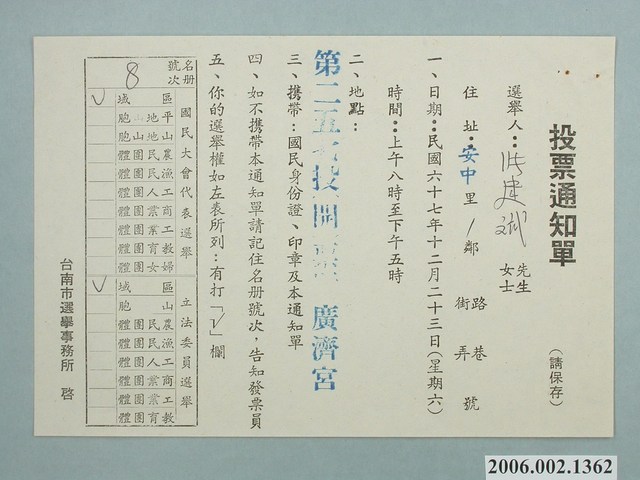 投票通知單
(請保存)
選舉人：洪建斌 先生 女士
住址：安中里1鄰 路街 巷弄 號
一、日期：民國六十七年十二月二十三日(星期六)
時間：上午八時至下午五時
二、地點：
第二五 投開票 廣濟宮
三、攜帶：國民身份證、印章及本通知單
四、如不攜帶本通知單請記住名册號次，告知發票員
五、你的選舉權如左表所列：有打「V」欄
名册號次 8
國民大會代表選舉
區域 V
平地山胞
山地山胞
農民團體
漁民團體
工人團體
商業團體
工業團體
教育團體
婦女團體
立法委員選舉
區域 V
山胞
農民團體
漁民團體
工人團體
商業團體
工業團體
教育團體
台南市選舉事務所 啓
2006.002.1362